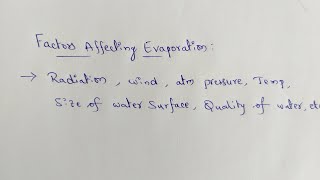 Factors Affecting Evaporation:
→ Radiation, wind, atm pressure, Temp,
Size of water Surface, Quality of water, etc